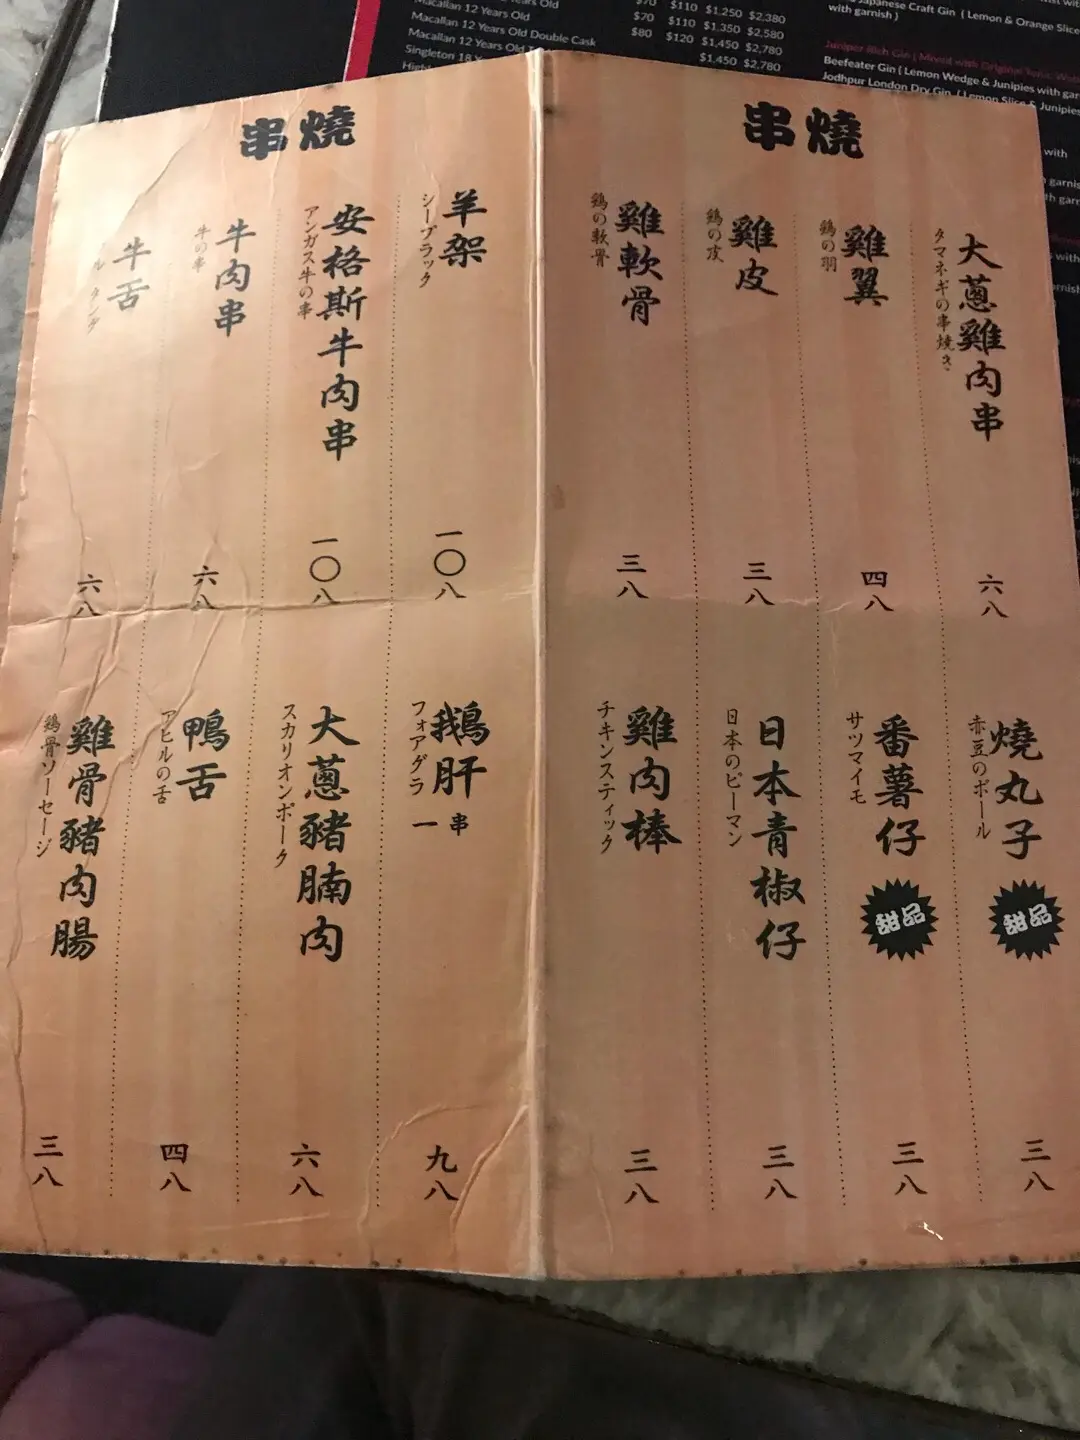 Years Old
$70 $110 $1,250 $2,380
Macallan 12 Years Old
$70 $110 $1,350 $2,580
Macallan 12 Years Old Double Cask
$80 $120 $1,450 $2,780
Macallan 12 Years Old
$1,450 $2,780
Singleton 18
Japanese Craft Gin ( Lemon & Orange Slice
with garnish )
Juniper Rich Gin ( Mixed with Original Tonic
Beefeater Gin ( Lemon Wedge & Junipies with
Jodhpur London Dry Gin ( Lemon Slice & Junipies
with
串燒
大蔥雞肉串
タマネギの串焼き
六八
雞翼
鶏の羽
四八
雞皮
鶏の皮
三八
雞軟骨
鶏の軟骨
三八
燒丸子
赤豆のボール
甜品
三八
番薯仔
サツマイモ
甜品
三八
日本青椒仔
日本のピーマン
三八
雞肉棒
チキンスティック
三八
串燒
羊架
シープラック
一〇八
安格斯牛肉串
アンガス牛の串
一〇八
牛肉串
牛の串
六八
牛舌
タング
六八
鵝肝 一串
フォアグラ
九八
大蔥豬腩肉
スカリオンポーク
六八
鴨舌
アヒルの舌
四八
雞骨豬肉腸
鶏骨ソーセージ
三八